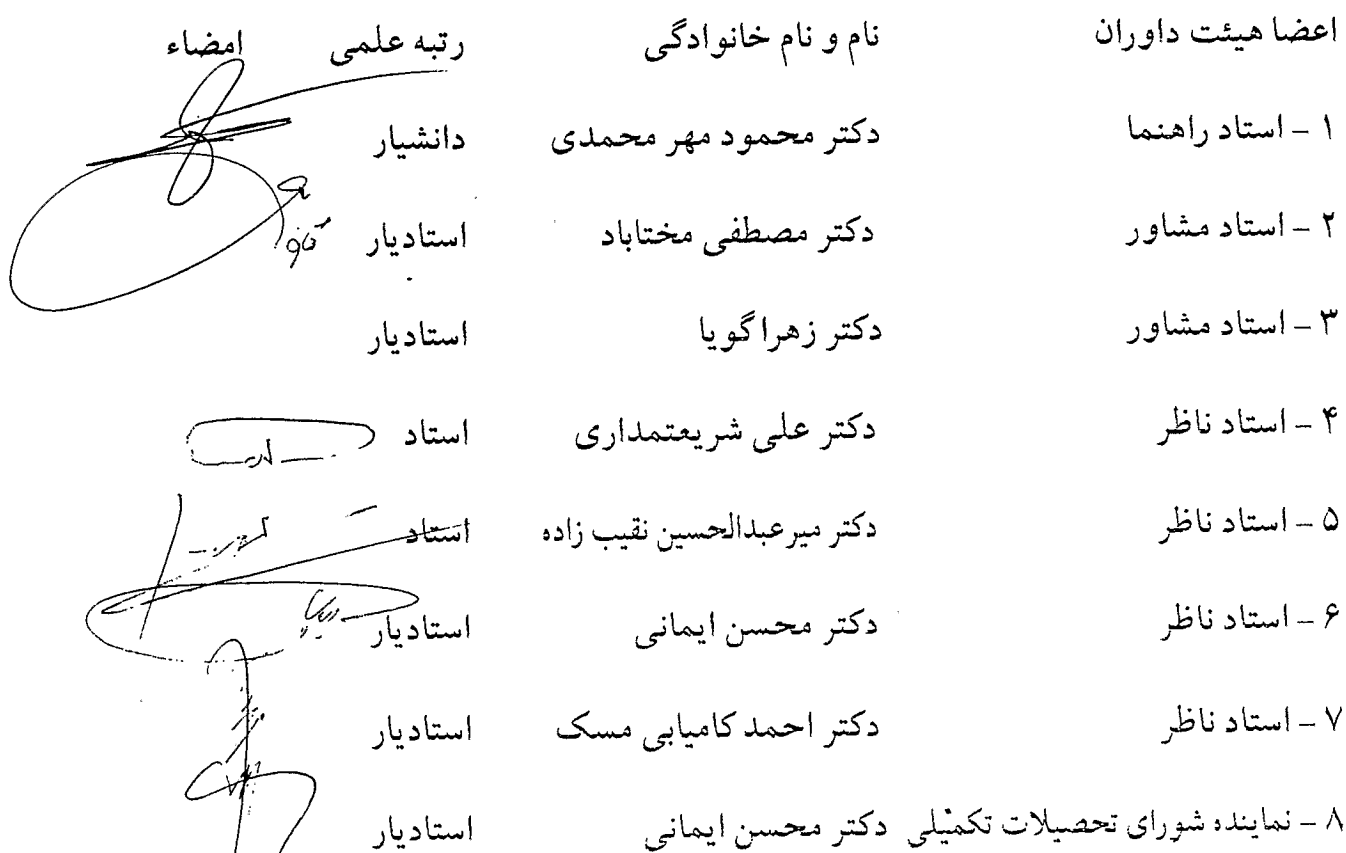 اعضا هیئت داوران نام و نام خانوادگی رتبه علمی امضاء
۱ - استاد راهنما دکتر محمود مهر محمدی دانشیار
۲ - استاد مشاور دکتر مصطفی مختاباد استادیار
۳ - استاد مشاور دکتر زهرا گویا استادیار
۴ - استاد ناظر دکتر علی شریعتمداری استاد
۵ - استاد ناظر دکتر میرعبدالحسین نقیب زاده استاد
۶ - استاد ناظر دکتر محسن ایمانی استادیار
۷ - استاد ناظر دکتر احمد کامیابی مسک استادیار
۸ - نماینده شورای تحصیلات تکمیلی دکتر محسن ایمانی استادیار